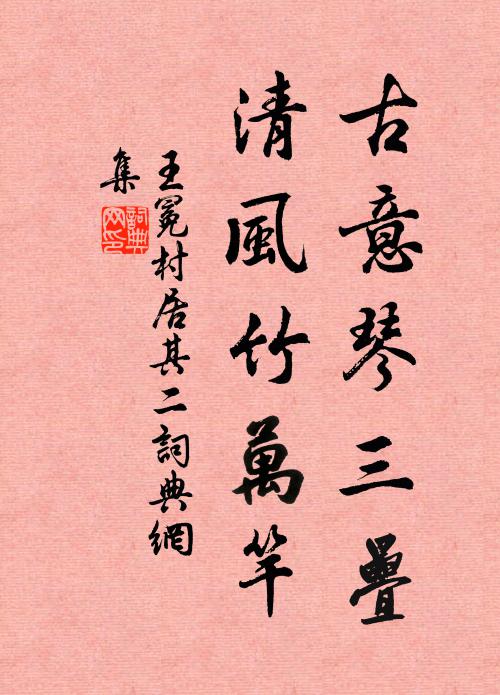 古意琴三疊
清風竹萬竿
王冕村居其二詞典網
集
詞典
网印